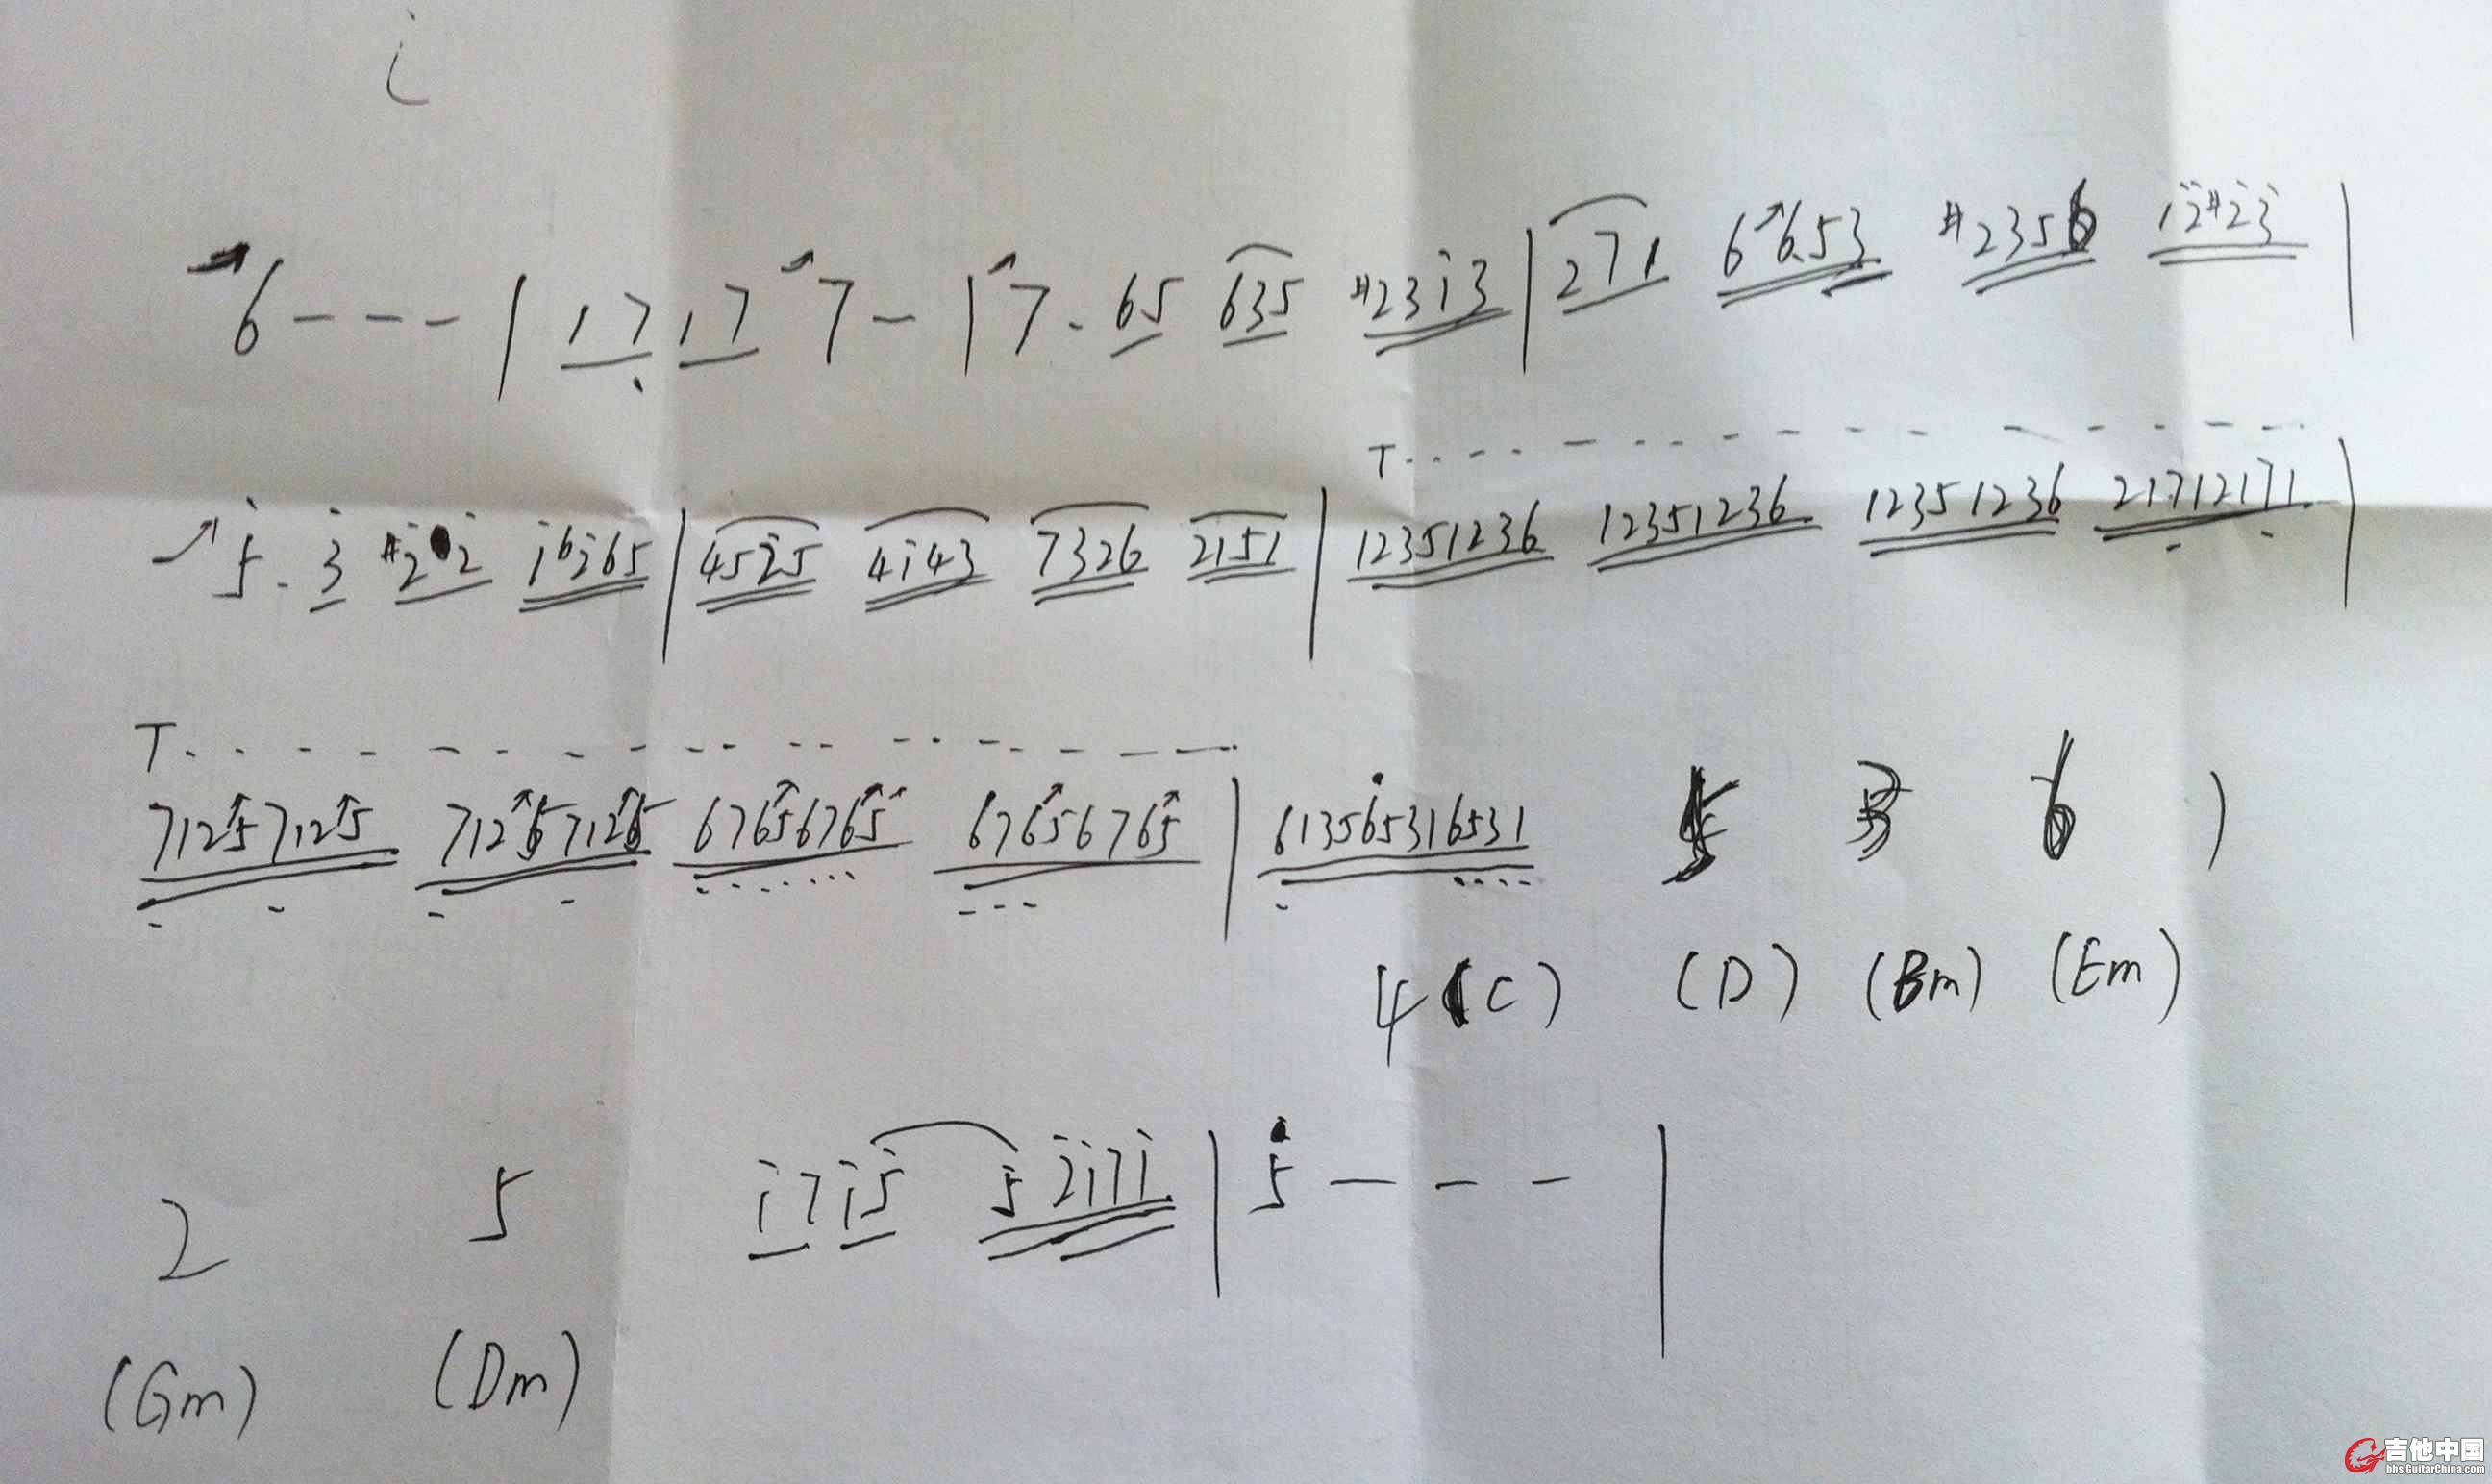 i
6 - - - | 17 17 7 - | 7 - 65 635 #2313 | 271 6653 #2356 12#23 |
5 - 3 #22 16265 | 4525 4143 7326 2151 | T 12351236 12351236 12351236 21712171 |
T
71257125 71267126 67656765 67656765 | 613565316531 5 3 6 )
4 (C) (D) (Bm) (Em)
2 5 1715 52171 | 5 - - - |
(Gm) (Dm)
吉他中国
bbs.GuitarChina.com